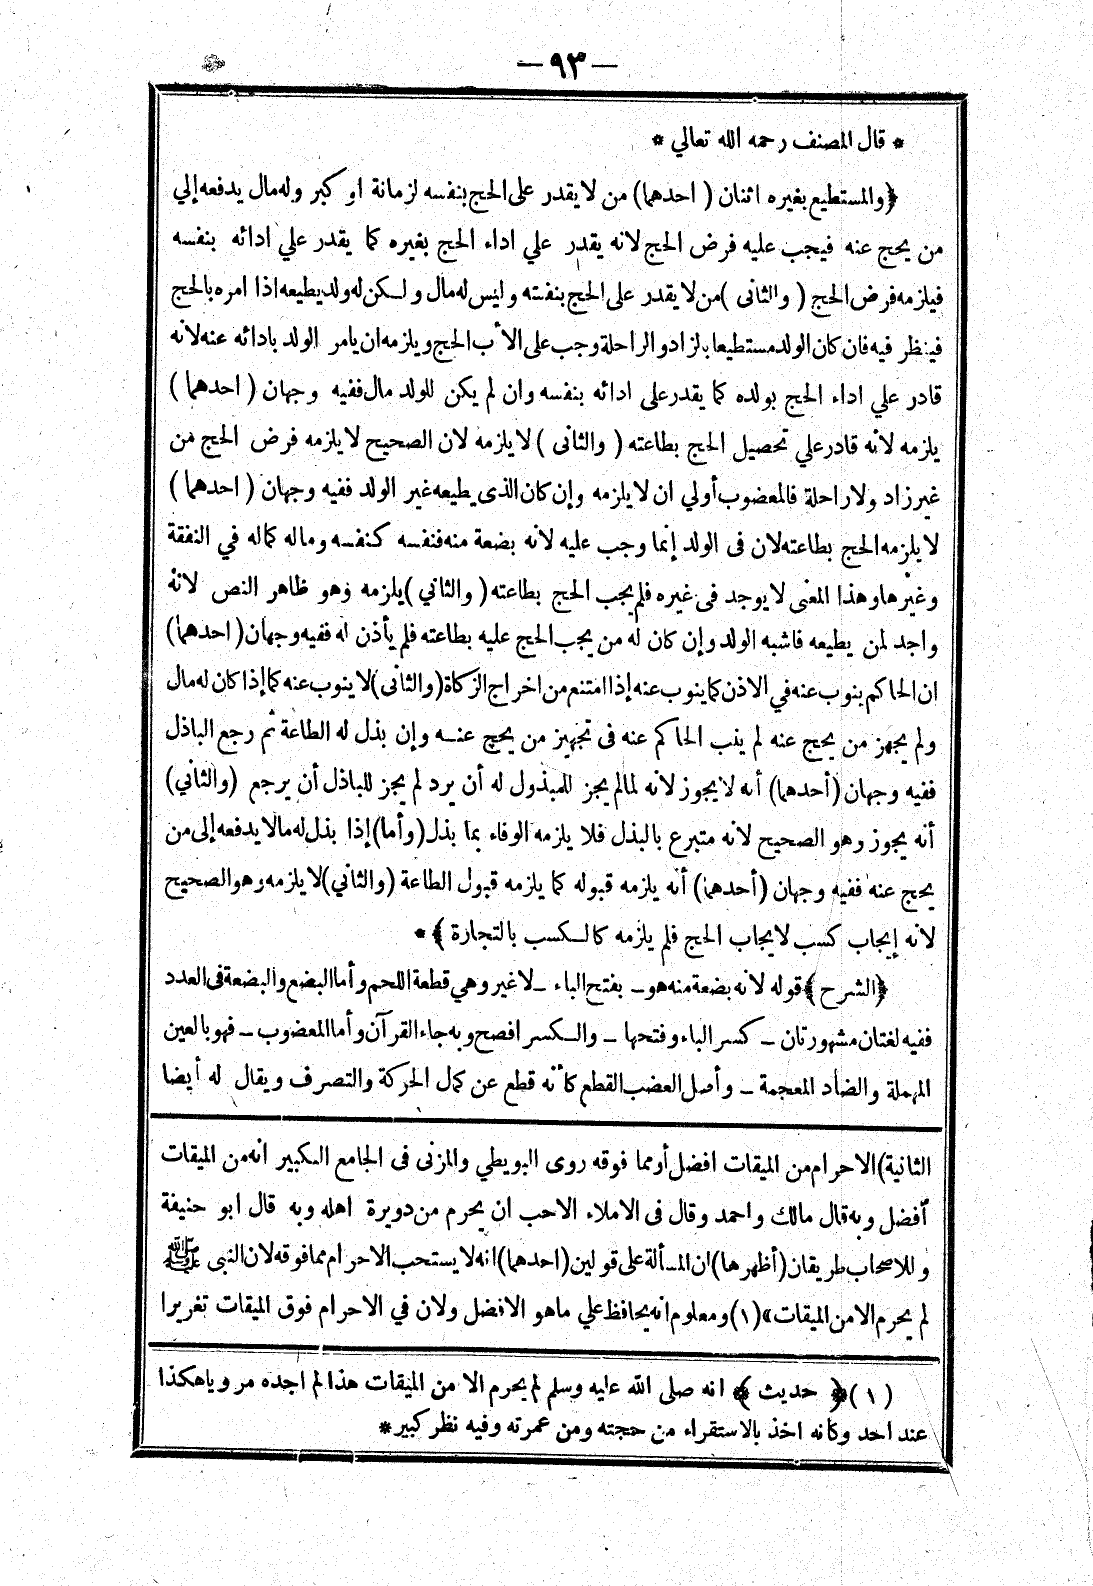 — ٩٣ —
* قال المصنف رحمه الله تعالي *
﴿والمستطيع بغيره اثنان ( احدهما) من لا يقدر على الحج بنفسه لزمانة او كبر وله مال يدفعه إلي
من يحج عنه فيجب عليه فرض الحج لانه يقدر علي اداء الحج بغيره كما يقدر علي ادائه بنفسه
فيلزمه فرض الحج ( والثانى ) من لا يقدر على الحج بنفسه وليس له مال ولـكن له ولد يطيعه اذا امره بالحج
فينظر فيه فان كان الولد مستطيعا بالزاد والراحلة وجب على الأب الحج ويلزمه ان يامر الولد بادائه عنه لانه
قادر علي اداء الحج بولده كما يقدر على ادائه بنفسه وان لم يكن للولد مال ففيه وجهان ( احدهما )
يلزمه لانه قادر علي تحصيل الحج بطاعته ( والثانى ) لا يلزمه لان الصحيح لا يلزمه فرض الحج من
غير زاد ولا راحلة فالمعضوب أولي ان لا يلزمه وإن كان الذى يطيعه غير الولد ففيه وجهان ( احدهما )
لا يلزمه الحج بطاعته لان فى الولد إنما وجب عليه لانه بضعة منه فنفسه كنفسه وماله كماله في النفقة
وغيرها وهذا المعنى لا يوجد فى غيره فلم يجب الحج بطاعته ( والثاني ) يلزمه وهو ظاهر النص لانه
واجد لمن يطيعه فاشبه الولد وإن كان له من يجب الحج عليه بطاعته فلم يأذن له ففيه وجهان ( احدهما)
ان الحاكم ينوب عنه في الاذن كما ينوب عنه إذا امتنع من اخراج الزكاة (والثانى) لا ينوب عنه كما إذا كان له مال
ولم يجهز من يحج عنه لم ينب الحاكم عنه فى تجهيز من يحج عنـه وإن بذل له الطاعة ثم رجع الباذل
ففيه وجهان (أحدهما) أنه لا يجوز لانه لما لم يجز للمبذول له أن يرد لم يجز للباذل أن يرجع (والثاني)
أنه يجوز وهو الصحيح لانه متبرع بالبذل فلا يلزمه الوفاء بما بذل (وأما) إذا بذل له مالا يدفعه إلى من
يحج عنه ففيه وجهان (أحدهما) أنه يلزمه قبوله كما يلزمه قبول الطاعة (والثاني) لا يلزمه وهو الصحيح
لانه إيجاب كسب لايجاب الحج فلم يلزمه كالـكسب بالتجارة ﴾ *
﴿الشرح﴾ قوله لانه بضعة منه هو ــ بفتح الباء ــ لا غير وهي قطعة اللحم وأما البضع والبضعة فى العدد
ففيه لغتان مشهورتان ــ كسر الباء وفتحها ــ والـكسر افصح وبه جاء القرآن وأما المعضوب ــ فهو بالعين
المهملة والضاد المعجمة ــ وأصل العضب القطع كأنه قطع عن كمال الحركة والتصرف ويقال له أيضا
الثانية) الاحرام من الميقات افضل أو مما فوقه روى البويطي والمزنى فى الجامع الـكبير انه من الميقات
أفضل وبه قال مالك واحمد وقال فى الاملاء الاحب ان يحرم من دويرة اهله وبه قال ابو حنيفة
وللاصحاب طريقان (أظهرها) ان المسألة على قولين (احدهما) انه لا يستحب الاحرام مما فوقه لان النبى ﷺ
لم يحرم الا من الميقات» (١) ومعلوم انه يحافظ علي ما هو الافضل ولان في الاحرام فوق الميقات تغريرا
(١) ﴿ حديث ﴾ انه صلى الله عليه وسلم لم يحرم الا من الميقات هذا لم اجده مرويا هكذا
عند احد وكأنه اخذ بالاستقراء من حجته ومن عمرته وفيه نظر كبير *